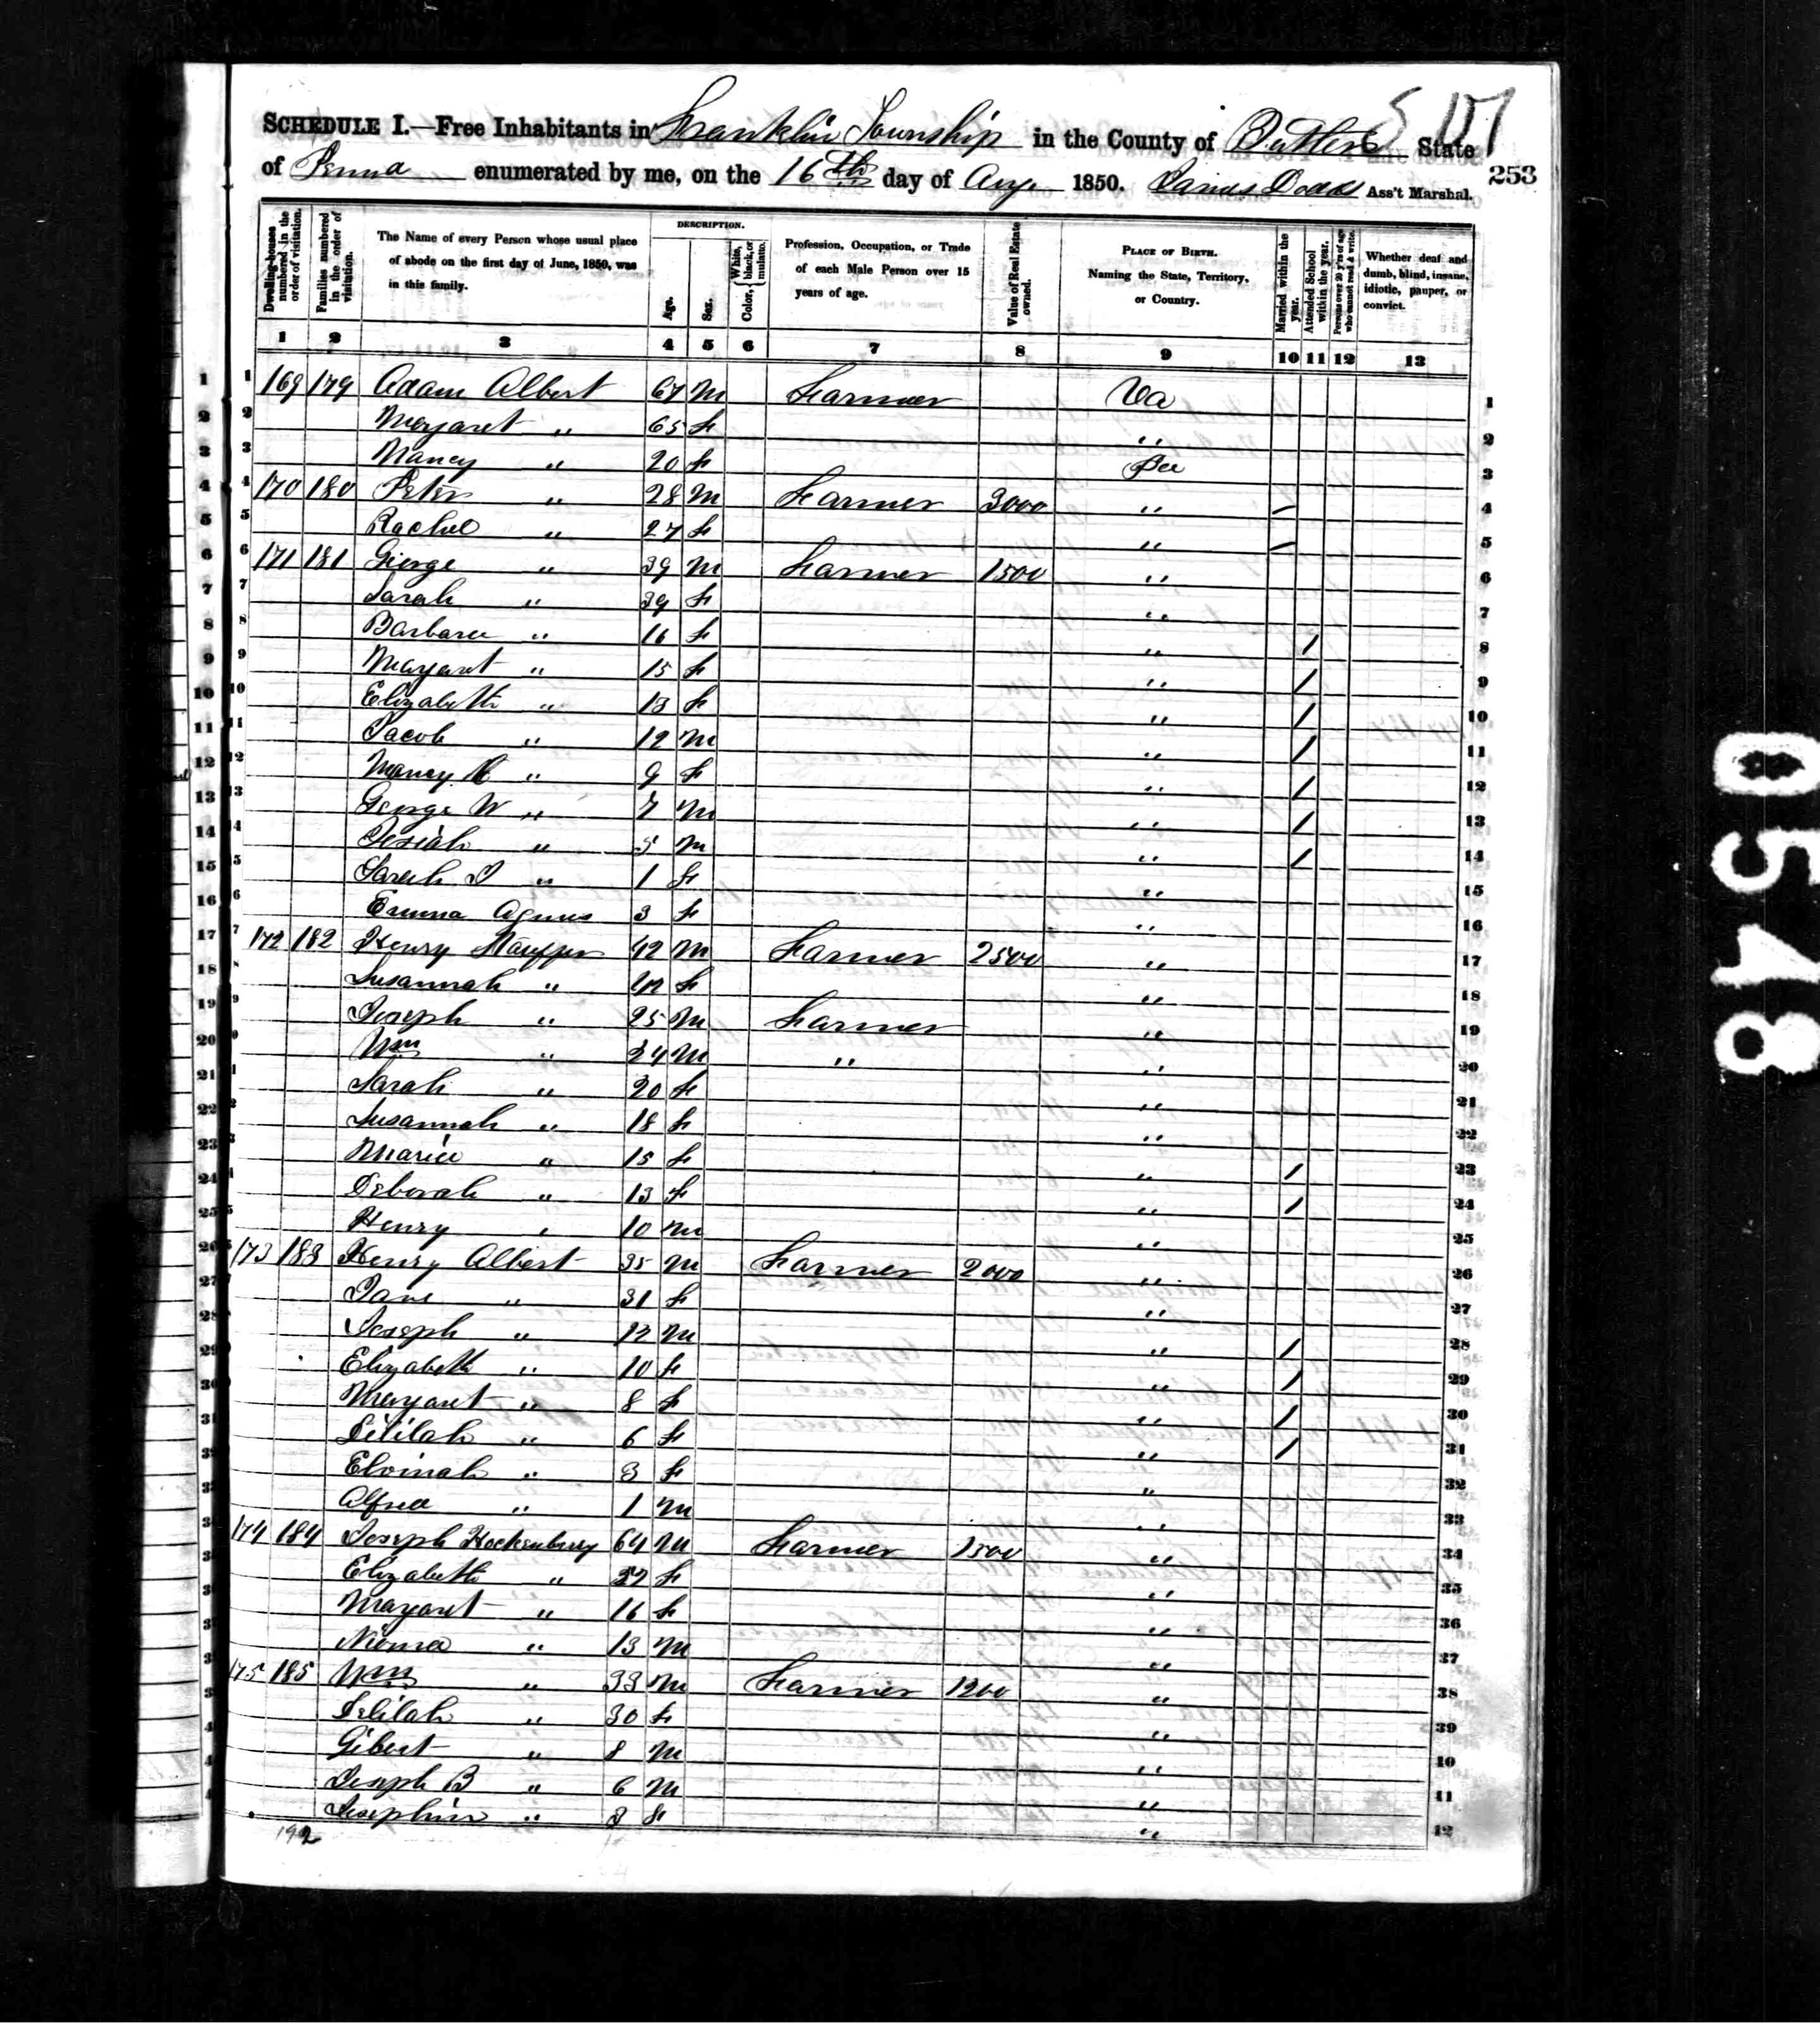 SCHEDULE I.—Free Inhabitants in Franklin Township in the County of Butler State
of Penna enumerated by me, on the 16th day of Aug 1850. Dodds Ass't Marshal. 253
Dwelling-houses numbered in the order of visitation.
Families numbered in the order of visitation.
The Name of every Person whose usual place of abode on the first day of June, 1850, was in this family.
DESCRIPTION.
Age.
Sex.
Color, White, black, or mulatto.
Profession, Occupation, or Trade of each Male Person over 15 years of age.
Value of Real Estate owned.
PLACE OF BIRTH. Naming the State, Territory, or Country.
Married within the year.
Attended School within the year.
Persons over 20 y'rs of age who cannot read & write.
Whether deaf and dumb, blind, insane, idiotic, pauper, or convict.
1 2 3 4 5 6 7 8 9 10 11 12 13
1 169 179 Adam Albert 67 M Farmer Va 1
2 Margaret " 65 F " 2
3 Nancy " 20 F 3
4 170 180 Peter " 28 M Farmer 3000 " / 4
5 Rachel " 27 F " / 5
6 171 181 George " 39 M Farmer 1500 " 6
7 Sarah " 39 F " 7
8 Barbara " 16 F " / 8
9 Margaret " 15 F " / 9
10 Elizabeth " 13 F " / 10
11 Jacob " 12 M " / 11
12 Nancy " 9 F " / 12
13 George W " 7 M " / 13
14 Josiah " 5 M " / 14
15 Sarah " 1 F " 15
16 Emma Agnes 3 F " 16
17 172 182 Henry Stauffer 42 M Farmer 2500 " 17
18 Susannah " F " 18
19 Joseph " 25 M Farmer " 19
20 Wm " 24 M " " 20
21 Sarah " 20 F " 21
22 Susannah " 18 F " 22
23 Maria " 15 F " / 23
24 Deborah " 13 F " / 24
25 Henry " 10 M " 25
26 173 183 Henry Albert 35 M Farmer 2000 " 26
27 Jane " 31 F " 27
28 Joseph " 12 M " / 28
29 Elizabeth " 10 F " / 29
30 Margaret " 8 F " / 30
31 Delilah " 6 F " / 31
Elvinah " 3 F " 32
Alfred " 1 M " 33
174 184 Joseph Hockenberry 64 M Farmer 1500 " 34
Elizabeth " F " 35
Margaret " 16 F " 36
" 13 M " 37
175 185 Wm " 33 M Farmer 1200 " 38
Delilah " 30 F " 39
Gibert " 8 M " 40
Joseph B " 6 M " 41
Josephine " F " 42
0548